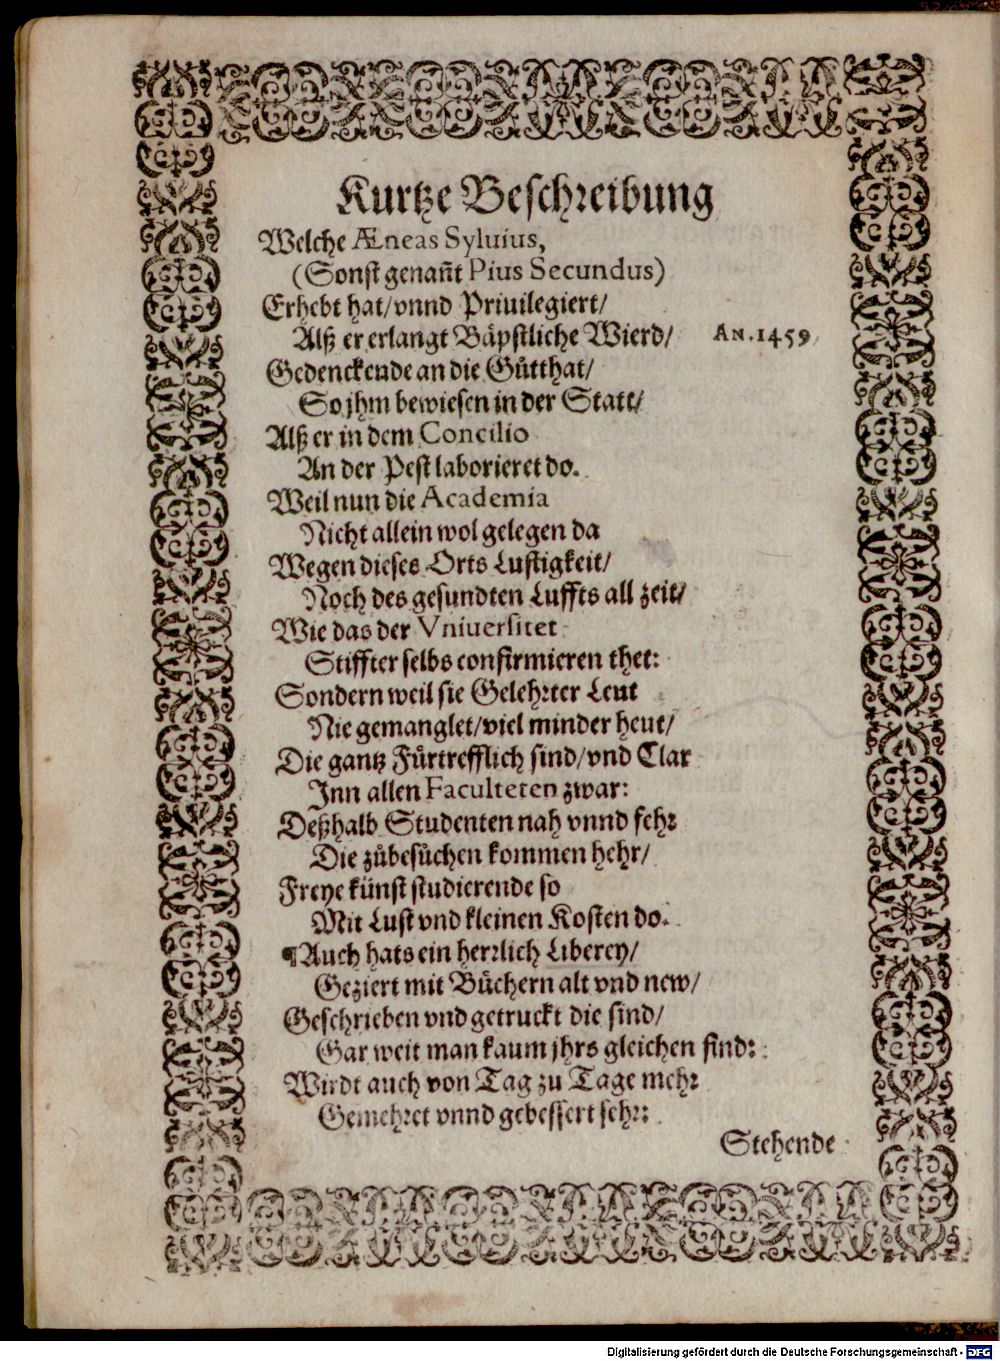 Kurtze Beschreibung
Welche Æneas Syluius,
(Sonst genañt Pius Secundus)
Erhebt hat/ vnnd Priuilegiert/
Alß er erlangt Bäpstliche Wierd/ AN. 1459.
Gedenckende an die Gůtthat/
So jhm bewiesen in der Statt/
Alß er in dem Concilio
An der Pest laborieret do.
Weil nun die Academia
Nicht allein wol gelegen da
Wegen dieses Orts Lustigkeit/
Noch des gesundten Luffts all zeit/
Wie das der Vniuersitet
Stiffter selbs confirmieren thet:
Sondern weil sie Gelehrter Leut
Nie gemanglet/ viel minder heut/
Die gantz Fürtrefflich sind/ vnd Clar
Inn allen Faculteten zwar:
Deßhalb Studenten nah vnnd fehr
Die zůbesůchen kommen hehr/
Freye künst studierende so
Mit Lust vnd kleinen Kosten do.
¶Auch hats ein herrlich Liberey/
Geziert mit Büchern alt vnd new/
Geschrieben vnd getruckt die sind/
Gar weit man kaum jhrs gleichen find:
Wirdt auch von Tag zu Tage mehr
Gemehret vnnd gebessert sehr:
Stehende
Digitalisierung gefördert durch die Deutsche Forschungsgemeinschaft - DFG